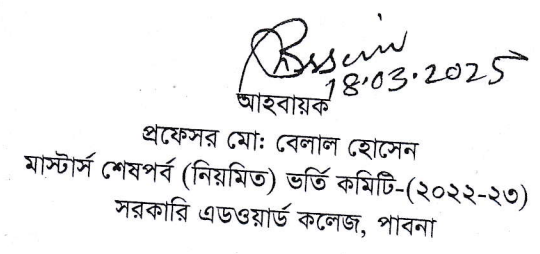 Hossain
18.03.2025
আহবায়ক
প্রফেসর মো: বেলাল হোসেন
মাস্টার্স শেষপর্ব (নিয়মিত) ভর্তি কমিটি-(২০২২-২৩)
সরকারি এডওয়ার্ড কলেজ, পাবনা